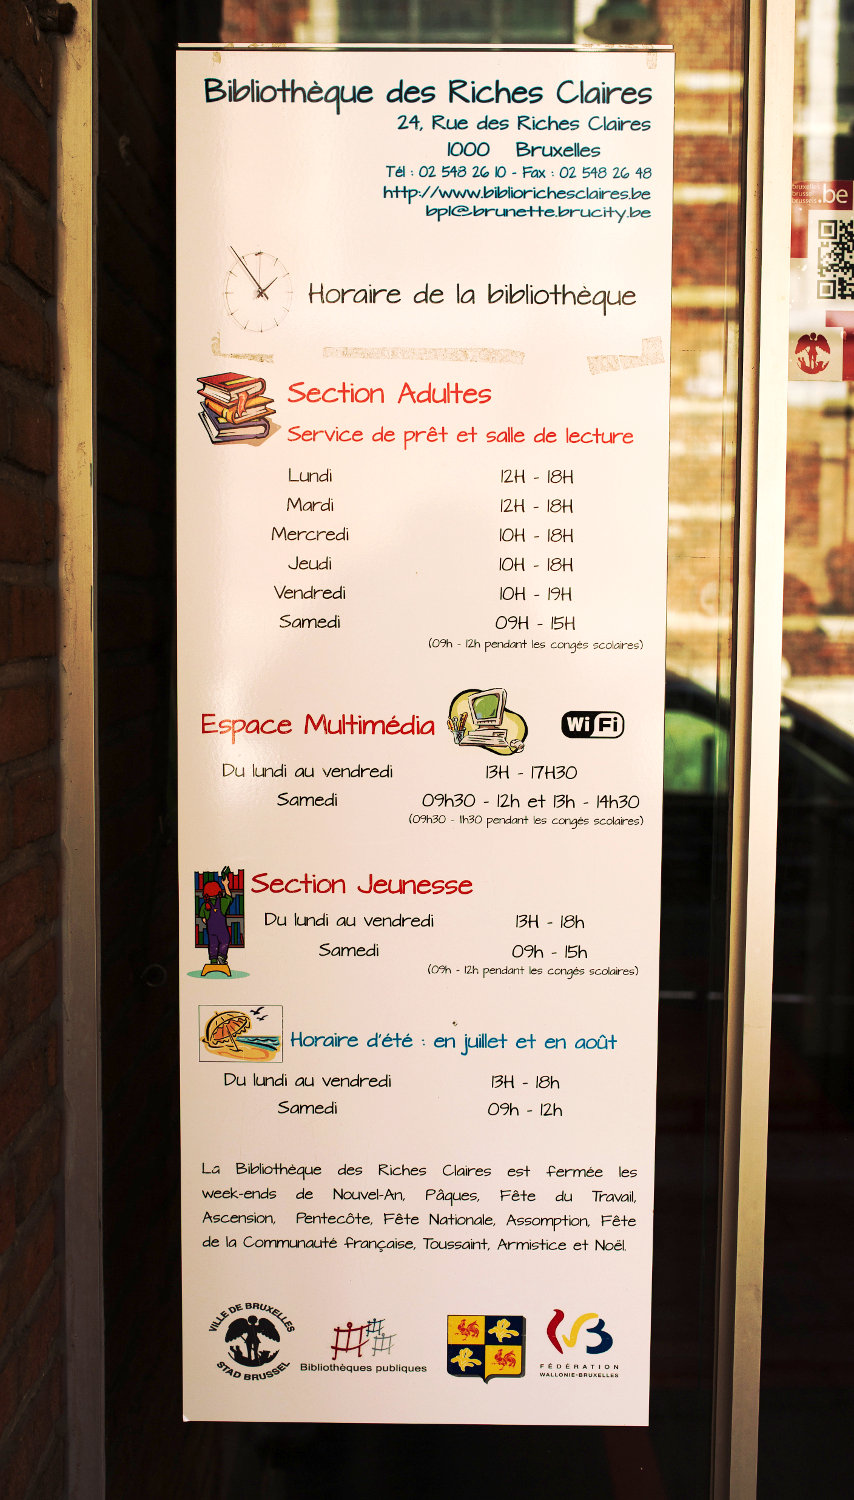 Bibliothèque des Riches Claires
24, Rue des Riches Claires
1000 Bruxelles
Tél : 02 548 26 10 - Fax : 02 548 26 48
http://www.bibliorichesclaires.be
bpl@brunette.brucity.be
Horaire de la bibliothèque
Section Adultes
Service de prêt et salle de lecture
Lundi 12H - 18H
Mardi 12H - 18H
Mercredi 10H - 18H
Jeudi 10H - 18H
Vendredi 10H - 19H
Samedi 09H - 15H
(09h - 12h pendant les congés scolaires)
Espace Multimédia WiFi
Du lundi au vendredi 13H - 17H30
Samedi 09h30 - 12h et 13h - 14h30
(09h30 - 1h30 pendant les congés scolaires)
Section Jeunesse
Du lundi au vendredi 13H - 18h
Samedi 09h - 15h
(09h - 12h pendant les congés scolaires)
Horaire d'été : en juillet et en août
Du lundi au vendredi 13H - 18h
Samedi 09h - 12h
La Bibliothèque des Riches Claires est fermée les
week-ends de Nouvel-An, Pâques, Fête du Travail,
Ascension, Pentecôte, Fête Nationale, Assomption, Fête
de la Communauté française, Toussaint, Armistice et Noël.
VILLE DE BRUXELLES
STAD BRUSSEL
Bibliothèques publiques
FÉDÉRATION
WALLONIE-BRUXELLES
bruxelles
brussel
brussels
.be